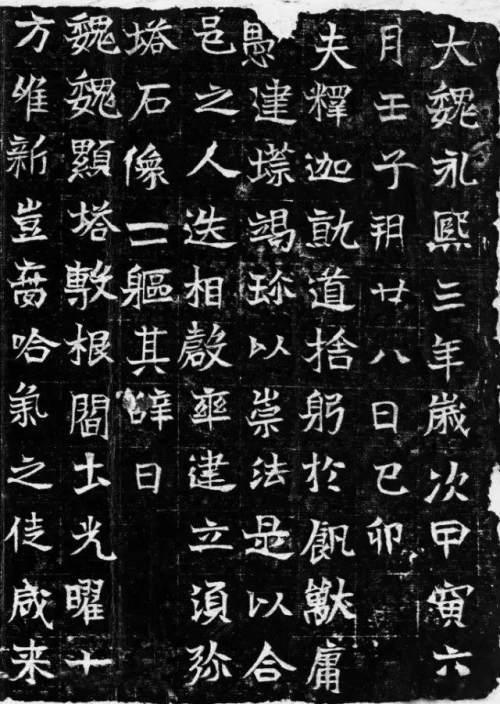 大魏永熙三年歲次甲寅六
月壬子朔廿八日己卯
夫釋迦就道捨躬於飢獸庸
愚建墖竭珎以崇法是以合
邑之人迭相率建立須弥
塔石像二軀其辞曰
魏魏顯塔敷根閻土光曜十
方惟新豈啻哈氣之徒咸来